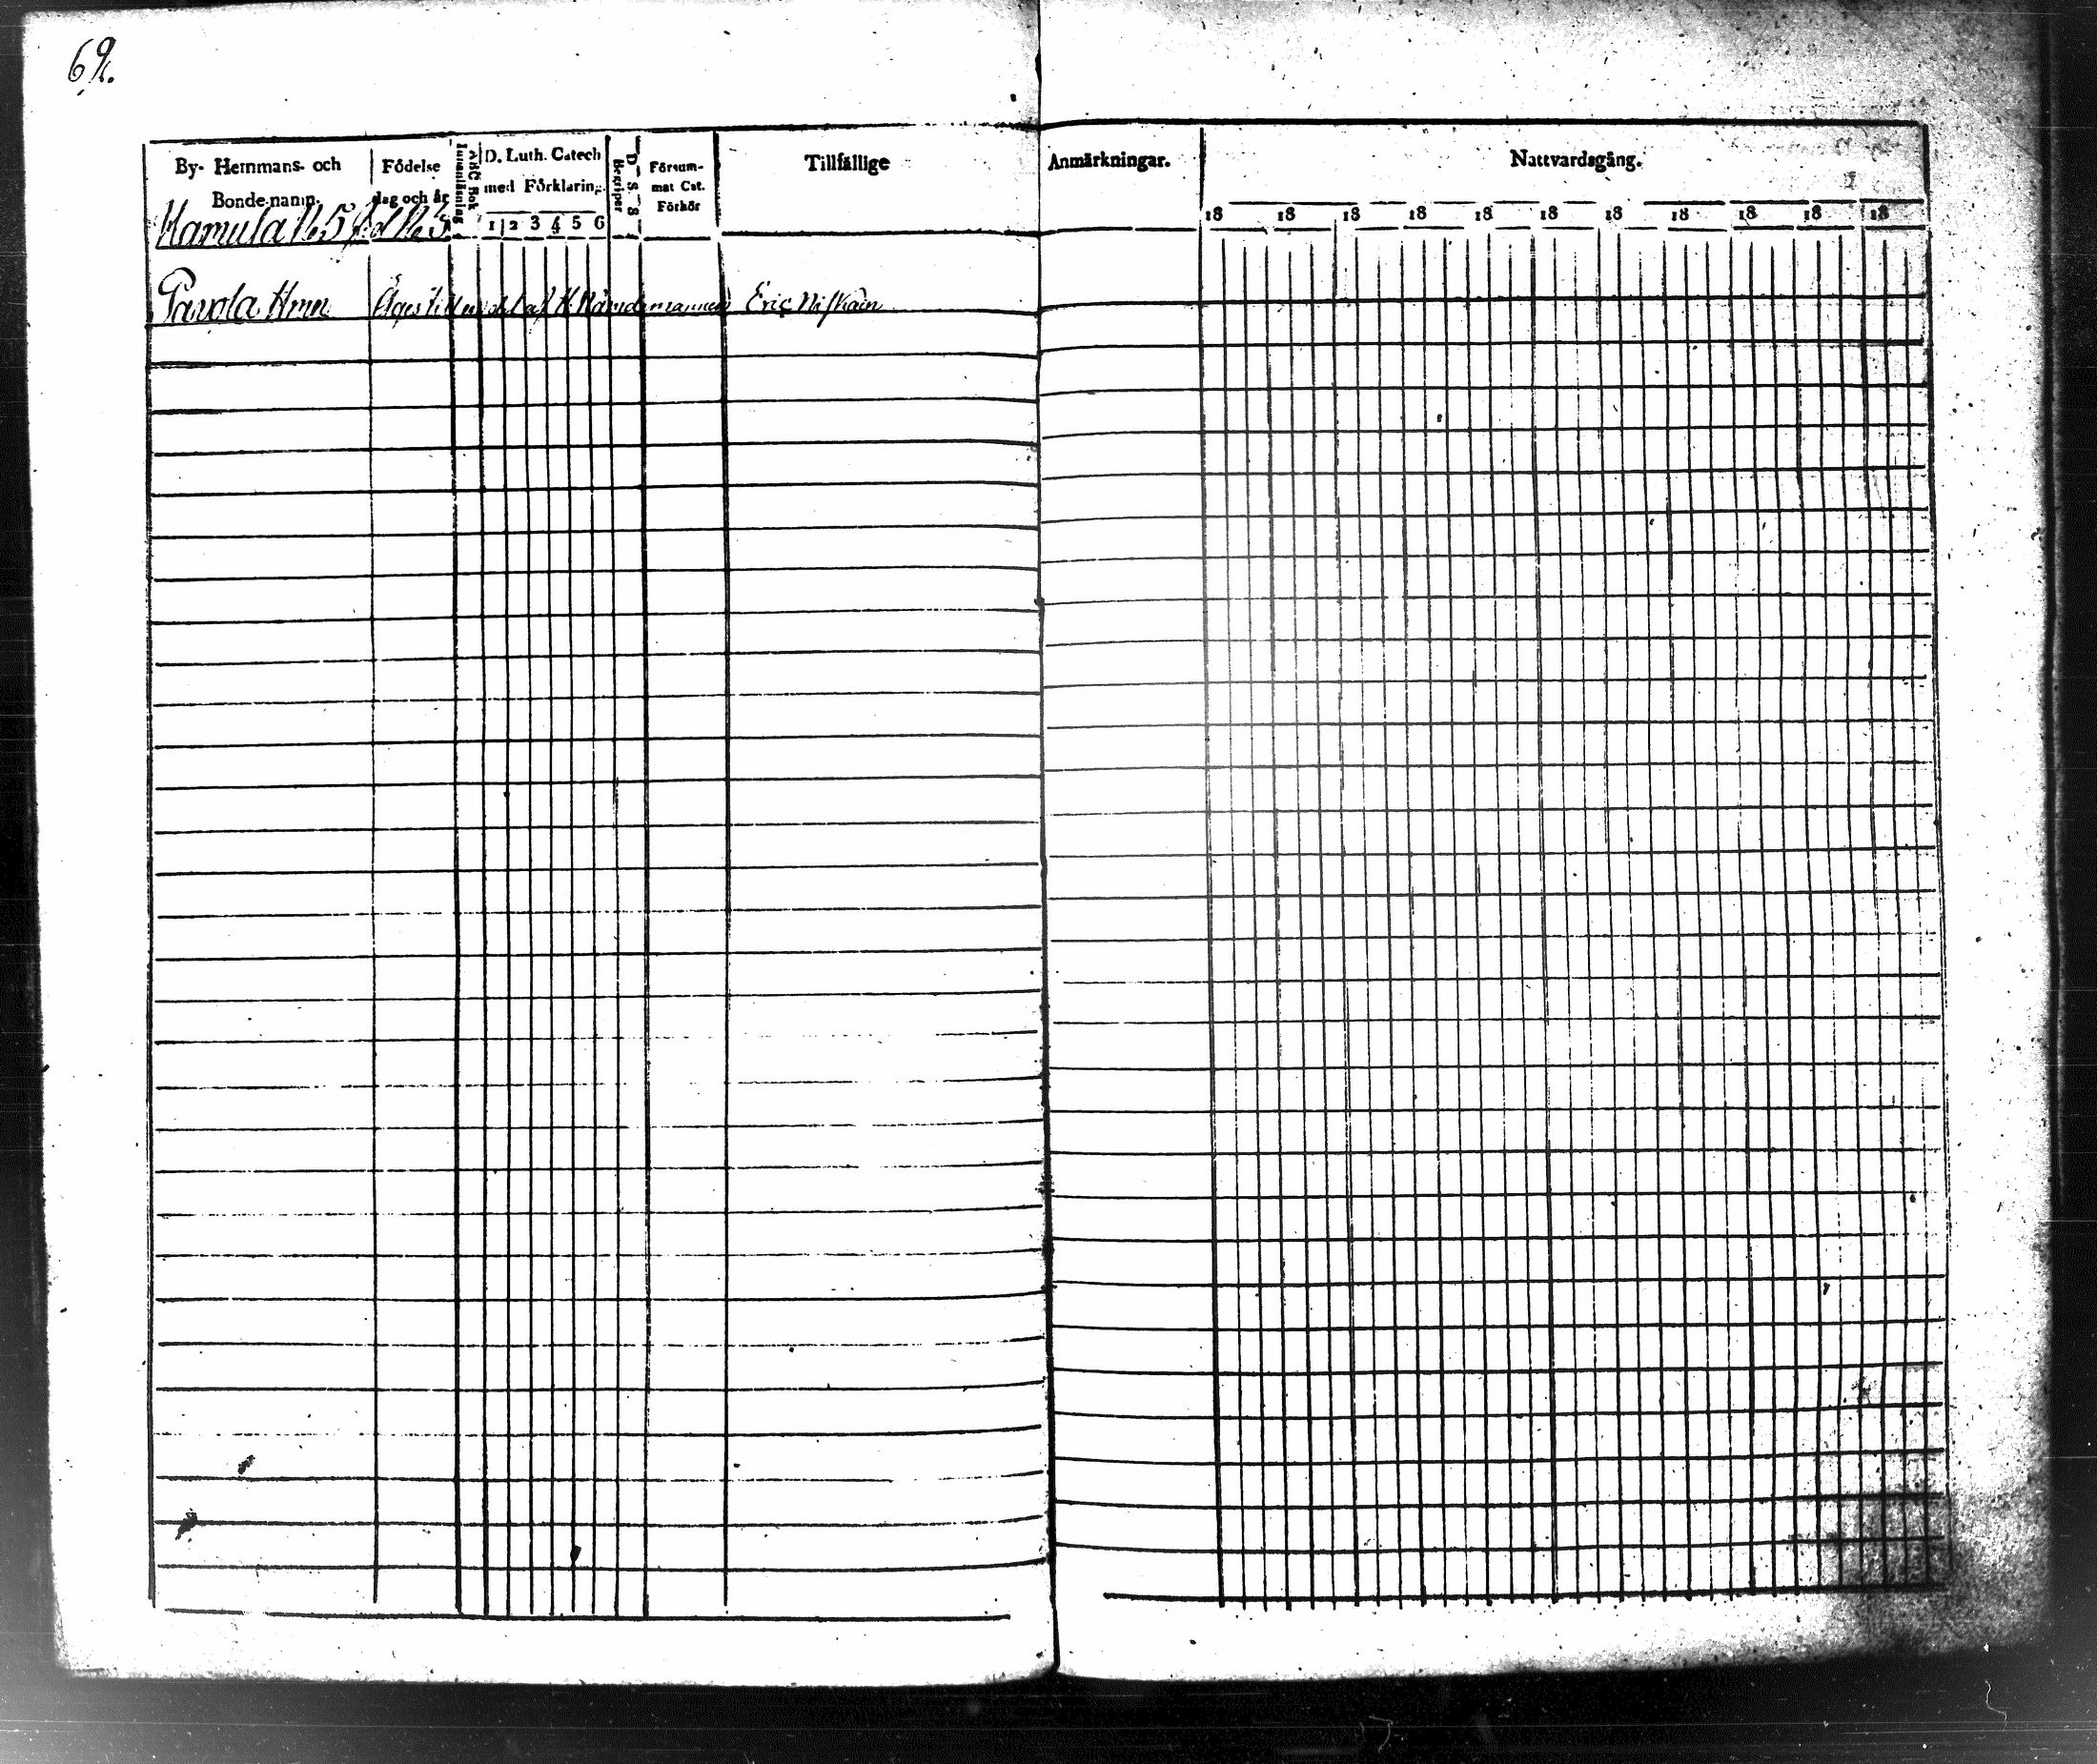 69.
By- Hemmans- och Bondenamn.
Födelse dag och år
Innanläsning
ABC Bok
D. Luth. Catech med Förklaring.
1 2 3 4 5 6
Begriper
D. S. S.
Försum- mat Cat. Förhör
Tillfällige
Anmärkningar.
Nattvardsgång.
18 18 18 18 18 18 18 18 18 18 18
Hamula N 5
Pavola Hmn Äges till en del af H Nämdemannen Eric Niskain